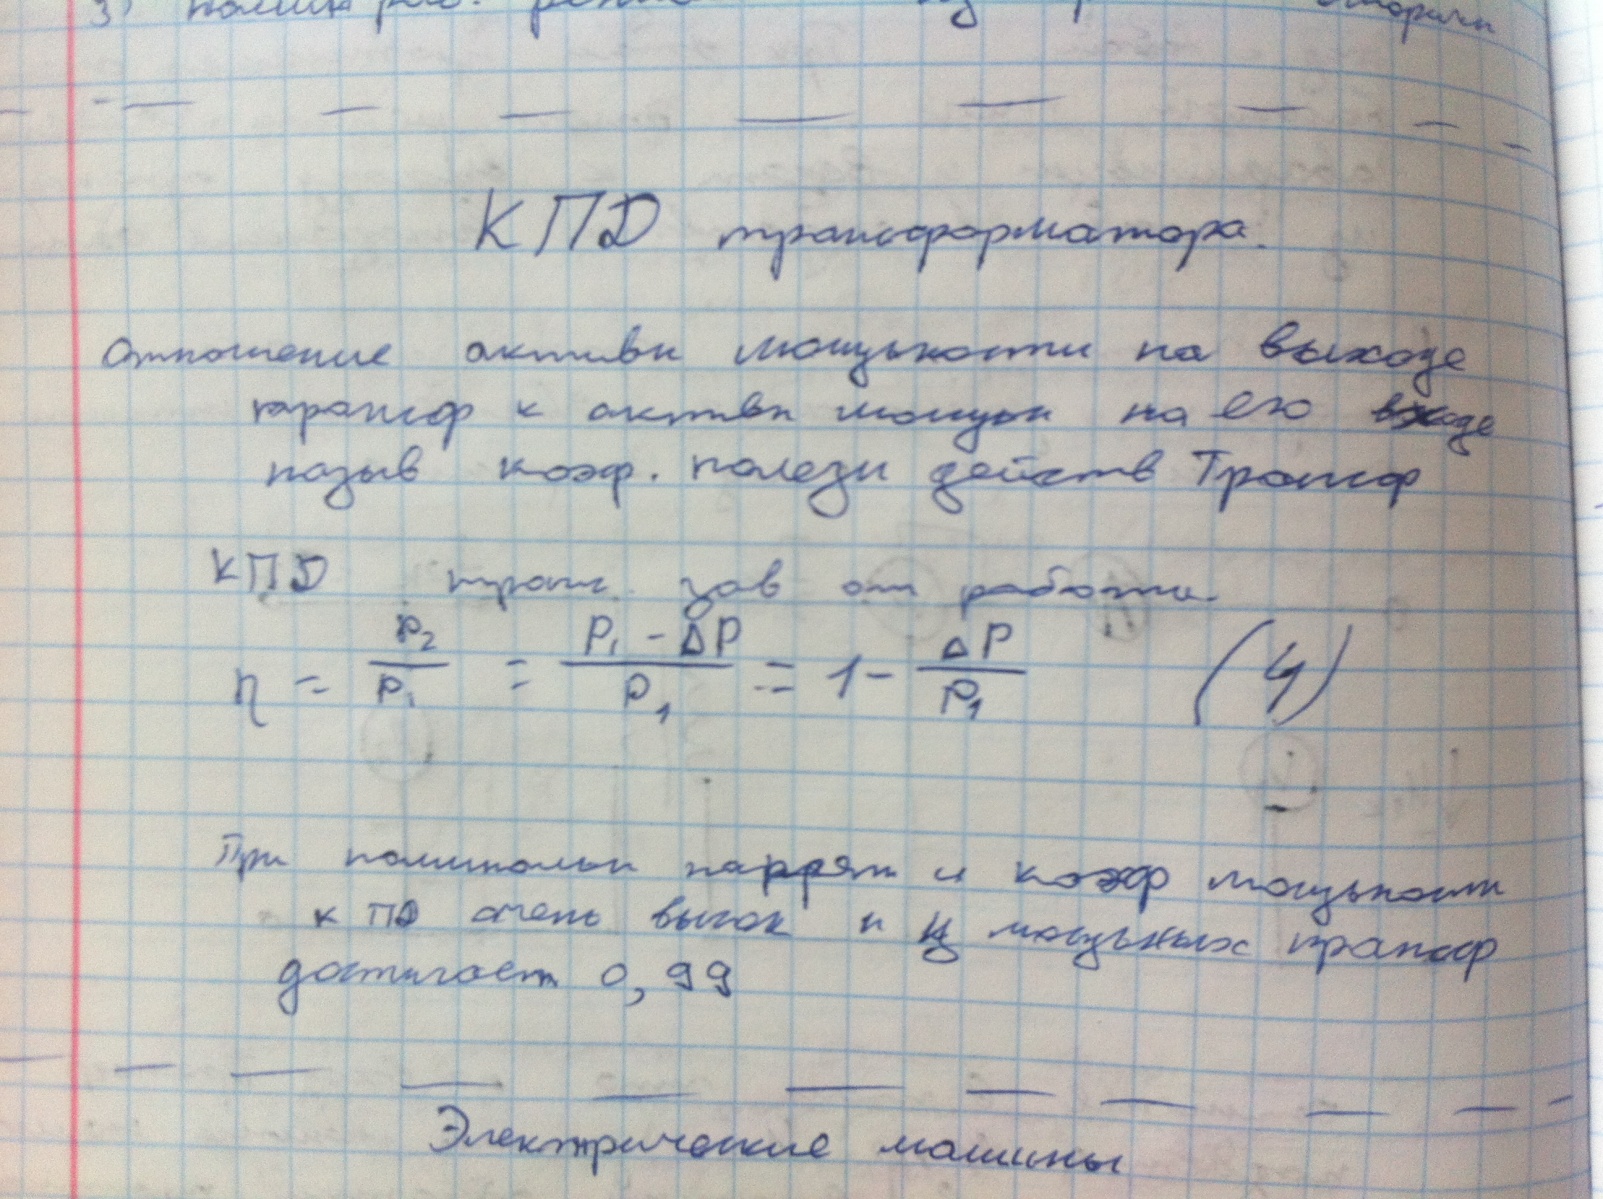 3)
КПД трансформатора.
Отношение активн мощьности на выходе
трансф к активн мощьн на его входе
назыв коэф. полезн действ Трансф
КПД транс. зав от работы.
η = P2/P1 = (P1 - ΔP)/P1 = 1 - ΔP/P1 (4)
При номинальн напряж и коэф мощьности
КПД очень высок и у мощьных трансф
достигает 0,99
Электрические машины